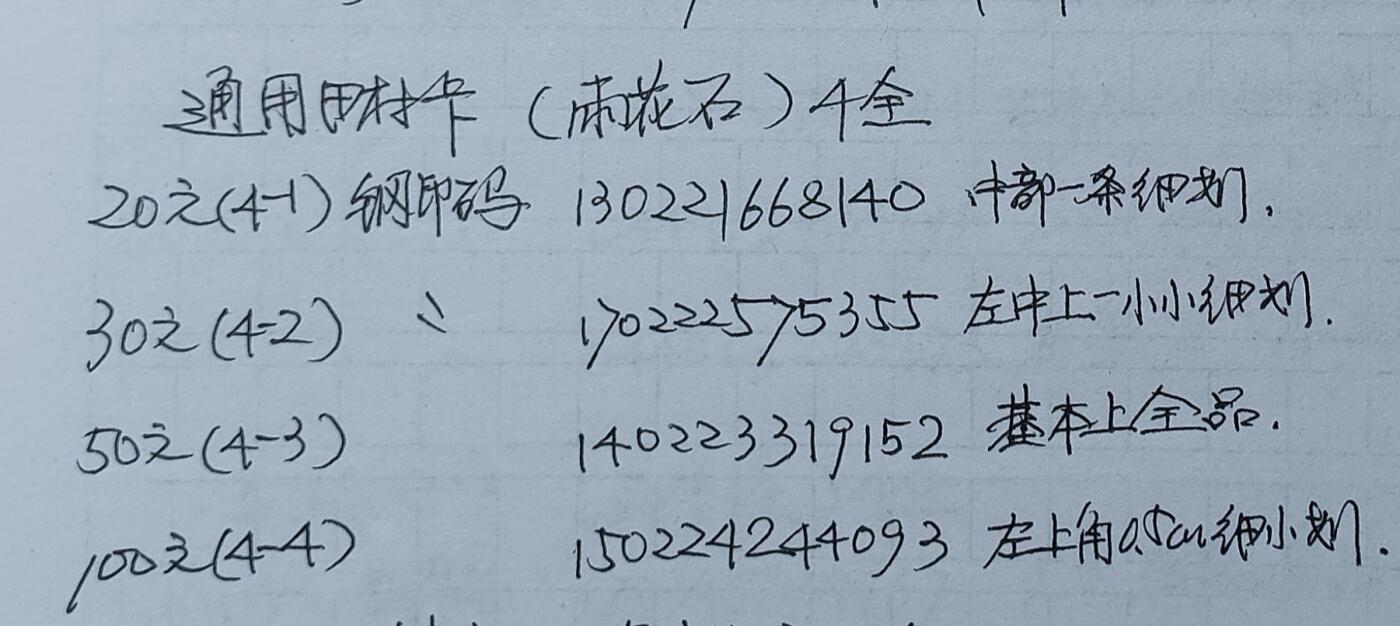 通用田村卡（雨花石）4全
20元(4-1) 钢印码 130221668140 中部一条细划.
30元(4-2) 〃 170222575355 左中上一小小细划.
50元(4-3) 140223319152 基本上全品.
100元(4-4) 150224244093 左上角0.5cm细小划.